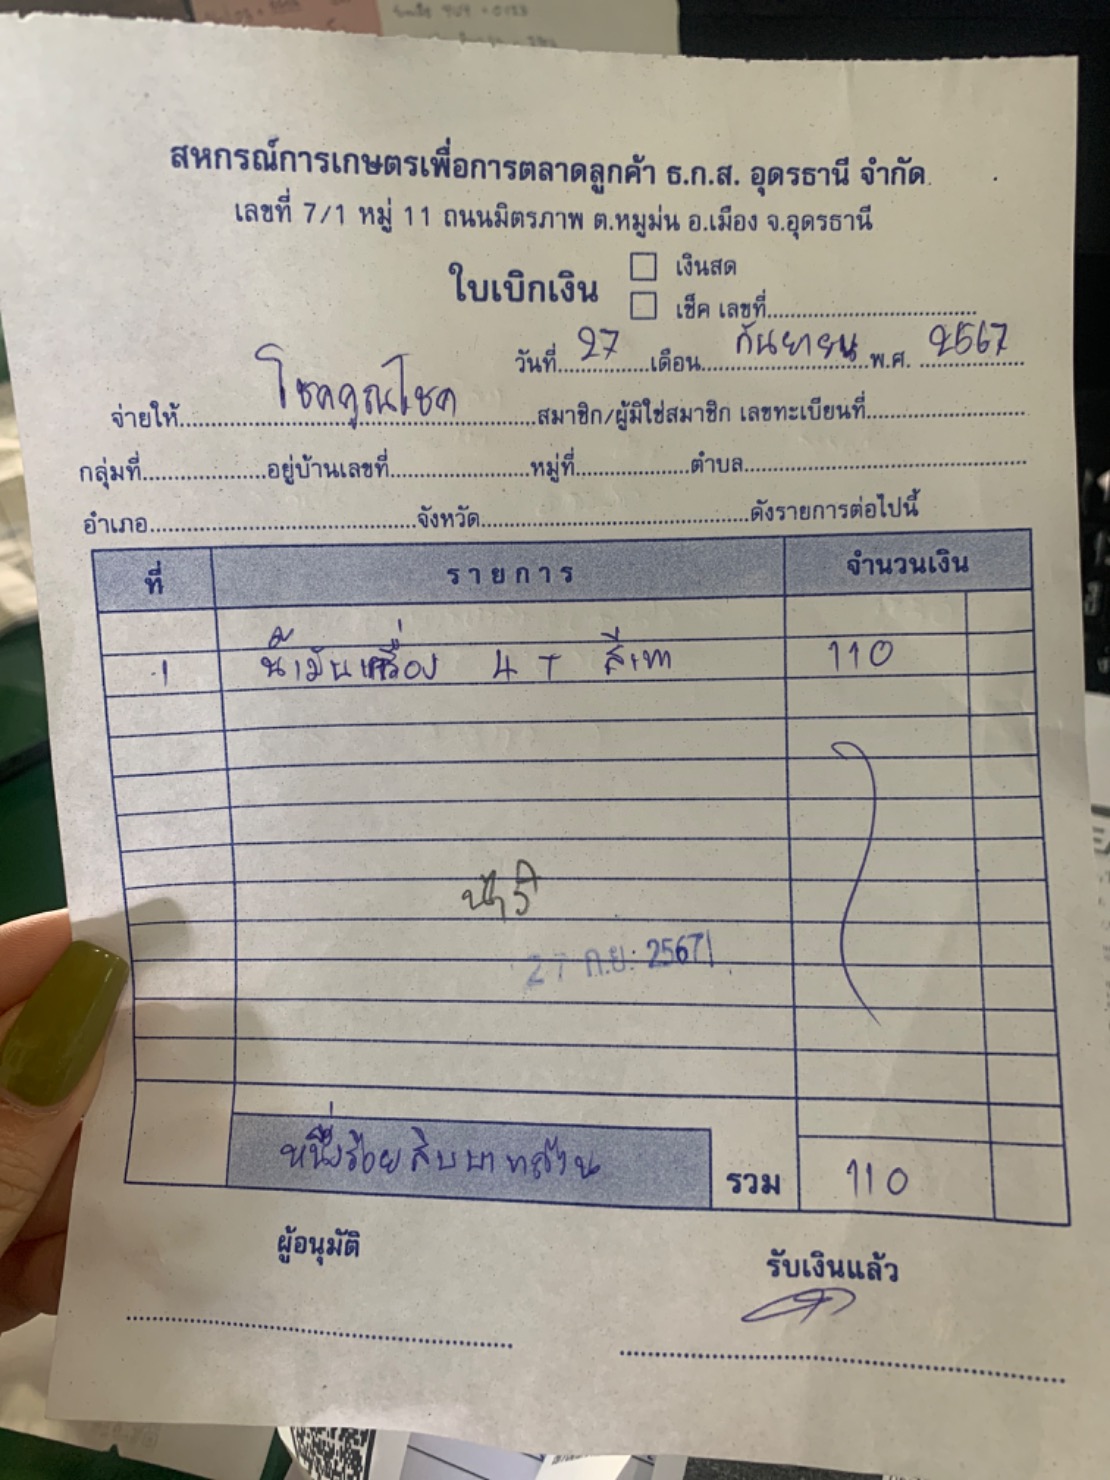 สหกรณ์การเกษตรเพื่อการตลาดลูกค้า ธ.ก.ส. อุดรธานี จำกัด
เลขที่ 7/1 หมู่ 11 ถนนมิตรภาพ ต.หมูม่น อ.เมือง จ.อุดรธานี
ใบเบิกเงิน
เงินสด
เช็ค เลขที่
วันที่ 27 เดือน กันยายน พ.ศ. 2567
จ่ายให้ โชคคูณโชค สมาชิก/ผู้มิใช่สมาชิก เลขทะเบียนที่
กลุ่มที่ อยู่บ้านเลขที่ หมู่ที่ ตำบล
อำเภอ จังหวัด ดังรายการต่อไปนี้
ที่ รายการ จำนวนเงิน
1 น้ำมันเครื่อง 4T สีเทา 110
27 ก.ย. 2567
หนึ่งร้อยสิบบาทถ้วน รวม 110
ผู้อนุมัติ รับเงินแล้ว